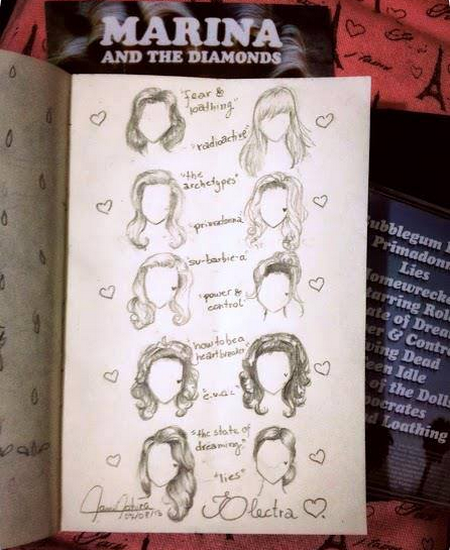 MARINA
AND THE DIAMONDS
"fear &
loathing"
"radioactive"
"the
archetypes"
"primadonna"
"su-barbie-a"
"power &
control"
"how to be a
heartbreaker"
"e.v.o.l"
"the state of
dreaming"
"lies"
Electra
ubblegum
Primadonn
Lies
Homewrecke
tarring Rol
ate of Drea
er & Contro
ving Dead
een Idle
of the Dolls
pocrates
nd Loathing